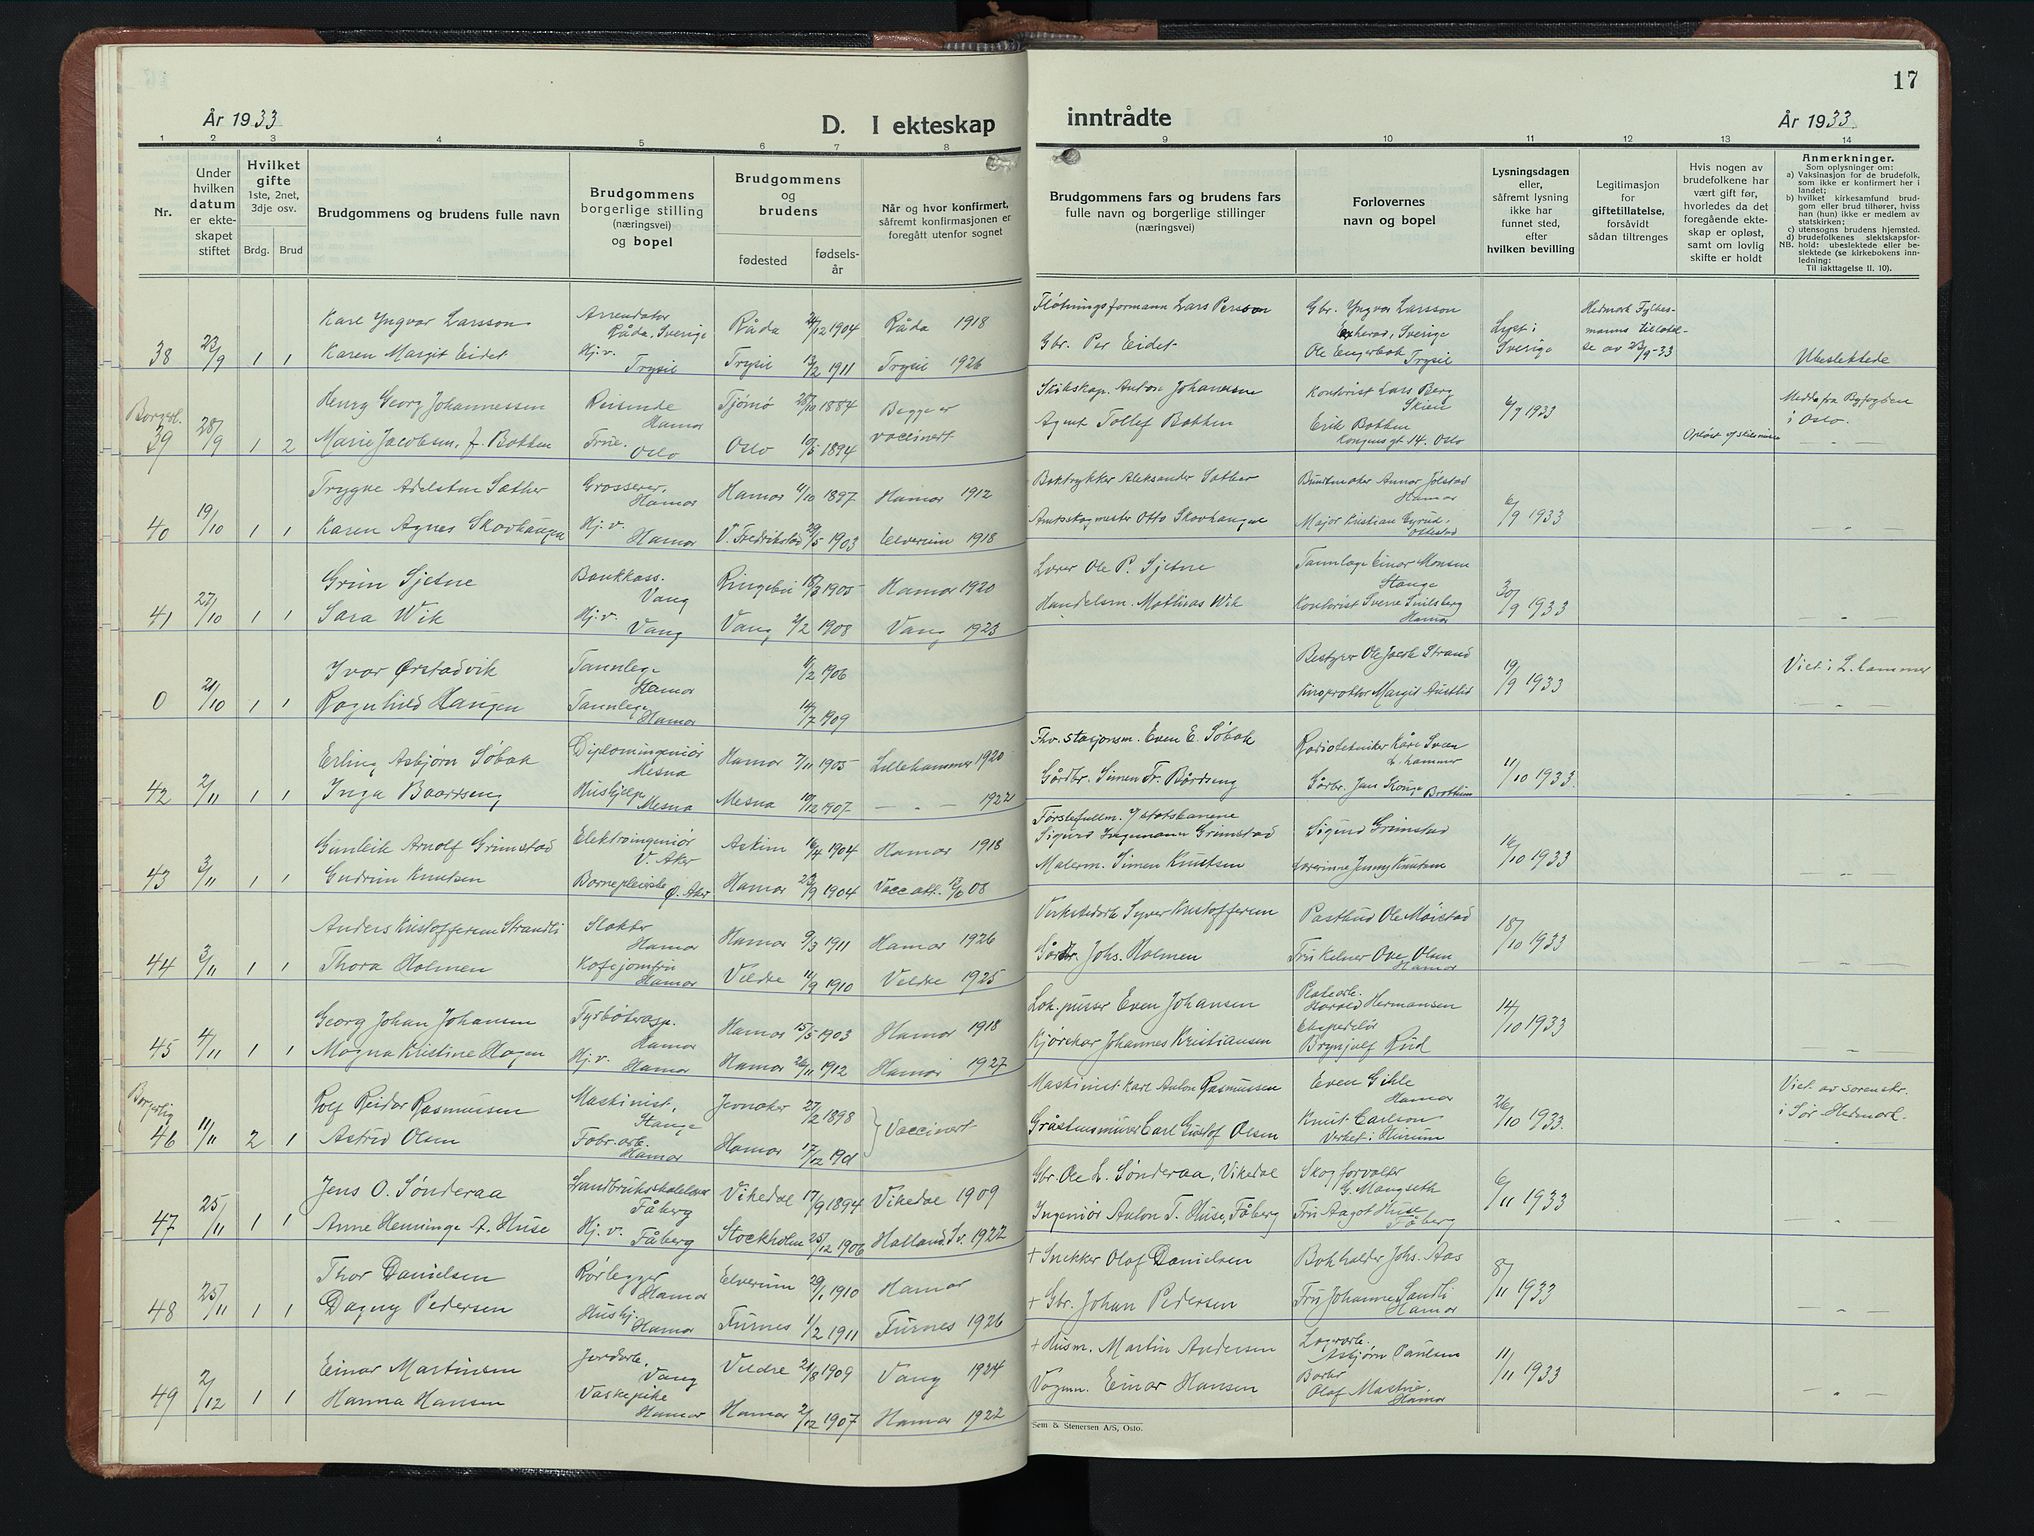 17
År 1933
D. I ekteskap
inntrådte
År 1933.
1 2 3 4 5 6 7 8
9 10 11 12 13 14
Nr.
Under hvilken datum er ekteskapet stiftet
Hvilket gifte
1ste, 2net, 3dje osv.
Brdg. Brud
Brudgommens og brudens fulle navn
Brudgommens borgerlige stilling (næringsvei) og bopel
Brudgommens og brudens
fødested
fødsels-år
Når og hvor konfirmert, såfremt konfirmasjonen er foregått utenfor sognet
Brudgommens fars og brudens fars fulle navn og borgerlige stillinger (næringsvei)
Forlovernes navn og bopel
Lysningsdagen eller, såfremt lysning ikke har funnet sted, efter hvilken bevilling
Legitimasjon for giftetillatelse, forsåvidt sådan tiltrenges
Hvis nogen av brudefolkene har vært gift før, hvorledes da det foregående ekteskap er opløst, samt om lovlig skifte er holdt
Anmerkninger.
Som oplysninger om:
a) Vaksinasjon for de brudefolk, som ikke er konfirmert her i landet;
b) hvilket kirkesamfund brudgom eller brud tilhører, hviss han (hun) ikke er medlem av statskirken;
c) utensogns brudens hjemsted.
d) brudefolkenes slektskapsforhold: ubeslektede eller beslektede (se kirkebokens innledning:
NB.
Til iakttagelse II. 10).
38 23/9 1 1
Karl Yngvar Larsson
Arrendator Råda, Sverige
Råda 24/12 1904
Råda 1918
Fløtningsformann Lars Persson
Gbr. Yngvar Larsson
Ekherad, Sverige
Lyst i Sverige
Hedmark Fylkesmanns tillatelse av 23/9-33
Karen Margit Eidet
Hj.v. Trysil
Trysil 13/2 1911
Trysil 1926
Gbr. Per Eidet
Ole Engerbak Trysil
Ubeslektede
Borgerl.
39 28/9 1 2
Henry Georg Johannessen
Reisende Hamar
Tjømø 28/10 1884
Begge er vaccinert
Skibskap. Anton Johannesen
Kontorist Lars Berg
Skien
6/9 1933
Medde fra Byfogden i Oslo.
Marie Jacobsen, f. Bakken
Frue. Oslo
Oslo 10/5 1894
Agent Tollef Bakken
Erik Bakken
Kongensgt 14. Oslo
Opløst v/skilsmisse
40 19/10 1 1
Trygve Adelsten Sæther
Grosserer, Hamar
Hamar 4/10 1897
Hamar 1912
Boktrykker Aleksander Sæther
Buntmaker Annar Jølstad
Hamar
6/9 1933
Karen Agnes Skovhaugen
Hj.v. Hamar
V. Fredrikstad 29/5 1903
Elverum 1918
Amtsskogmester Otto Skovhaugen
Major Kristian Gyrud, Ottestad
41 27/10 1 1
Grim Sjetne
Bankkass. Vang
Ringebu 18/3 1905
Hamar 1920
Lærer Ole P. Sjetne
Tannlæge Einar Monsen
Stange
30/9 1933
Sara Wik
Hj.v. Vang
Vang 2/2 1908
Vang 1923
Handelsm. Mathias Wik
Kontorist Sverre Snilsberg
Hamar
0 21/10 1 1
Ivar Ørstadvik
Tannlege Hamar
11/2 1906
Bestyrer Ole Jacob Strand
19/9 1933
Viet i L.hammer
Ragnhild Haugen
Tannlege Hamar
14/7 1909
Kiropraktor Margit Austlid
42 2/11 1 1
Erling Asbjørn Søbak
Diplomingeniør Mesna
Hamar 7/11 1905
Lillehammer 1920
Fhv. stasjonsm. Even E. Søbak
Radiotekniker Kåre Sveen
L.hammer
11/10 1933.
Inga Baardseng
Hushjelp Mesna
Mesna 10/12 1907
— " — 1922
Gårdbr. Simen Fr. Bårdseng
Gårbr. Jens Konge Brøttum
43 3/11 1 1
Gunleik Arnolf Grimstad
Elektroingeniør V. Aker
Askim 16/4 1904
Hamar 1918
Førstefullm. v/statsbanene
Sigurd Ingemann Grimstad
Sigurd Grimstad
16/10 1933
Gudrun Knutsen
Barnepleierske Ø. Aker
Hamar 23/9 1904
Vacc att. 13/6 08
Malerm. Simen Knutsen
Lærerinne Jenny Knutsen
44 3/11 1 1
Anders Kristoffersen Strandli
Slakter Hamar
Hamar 9/3 1911
Hamar 1926
Verkstedarb. Syver Kristoffersen
Postbud Ole Moistad
18/10 1933
Thora Holmen
Kafejomfru Hamar
Veldre 11/9 1910
Veldre 1925
Gårdbr. Johs. Holmen
Fru Kelner Ove Olsen
Hamar
45 4/11 1 1
Georg Johan Johansen
Fyrbøterasp. Hamar
Hamar 15/5 1903
Hamar 1918
Lok.pusser Even Johansen
Platearb. Harald Hermansen
14/10 1933
Magna Kristine Hagen
Hj.v. Hamar
Hamar 26/11 1912
Hamar 1927
Kjørekar Johannes Kristiansen
Ekspeditør Brynjulf Rud
Borgerlig
46 11/11 2 1
Rolf Reidar Rasmussen
Maskinist, Stange
Jevnaker 27/2 1898
Vaccinert
Maskinist Karl Anton Rasmussen
Even Gihle
Hamar
26/10 1933.
Viet av sorenskr. i Sør-Hedmark.
Astrid Olsen
Fabr.arb. Hamar
Hamar 17/12 1901
Gråstensmurer Carl Gustaf Olsen
Knut Carlson
Verket i Hurum
47 25/11 1 1
Jens O. Sønderaa
Landbruksskolelærer Fåberg
Vikedal 17/9 1894
Vikedal 1909
Gbr. Ole L. Sønderaa, Vikedal
Skogforvalter G. Mangseth
6/11 1933
Anne Henninge A. Huse
Hj.v. Fåberg
Stockholm 25/12 1906
Halland. Sv. 1922
Ingeniør Anton T. Huse, Fåberg
Fru Aagot Huse
Fåberg
48 25/11 1 1
Thor Danielsen
Rørlegger Hamar
Elverum 29/1 1910
Hamar
+ Snekker Olaf Danielsen
Bokholder Johs. Aas
8/11 1933
Dagny Pedersen
Hushj. Hamar
Furnes 11/2 1911
Furnes 1926
+ Gbr. Johan Pedersen
Fru Johanne Sandli
Hamar
49 2/12 1 1
Einar Martinsen
Jordarb. Vang
Veldre 21/8 1909
Vang 1924
+ Husm. Martin Andersen
Lagerarb. Asbjørn Paulsen
11/11 1933
Hanna Hansen
Vaskepike Hamar
Hamar 2/12 1907
Hamar 1922
Vognm. Einar Hansen
Barber Olaf Mastue, Hamar
Sem & Stenersen A/S, Oslo.